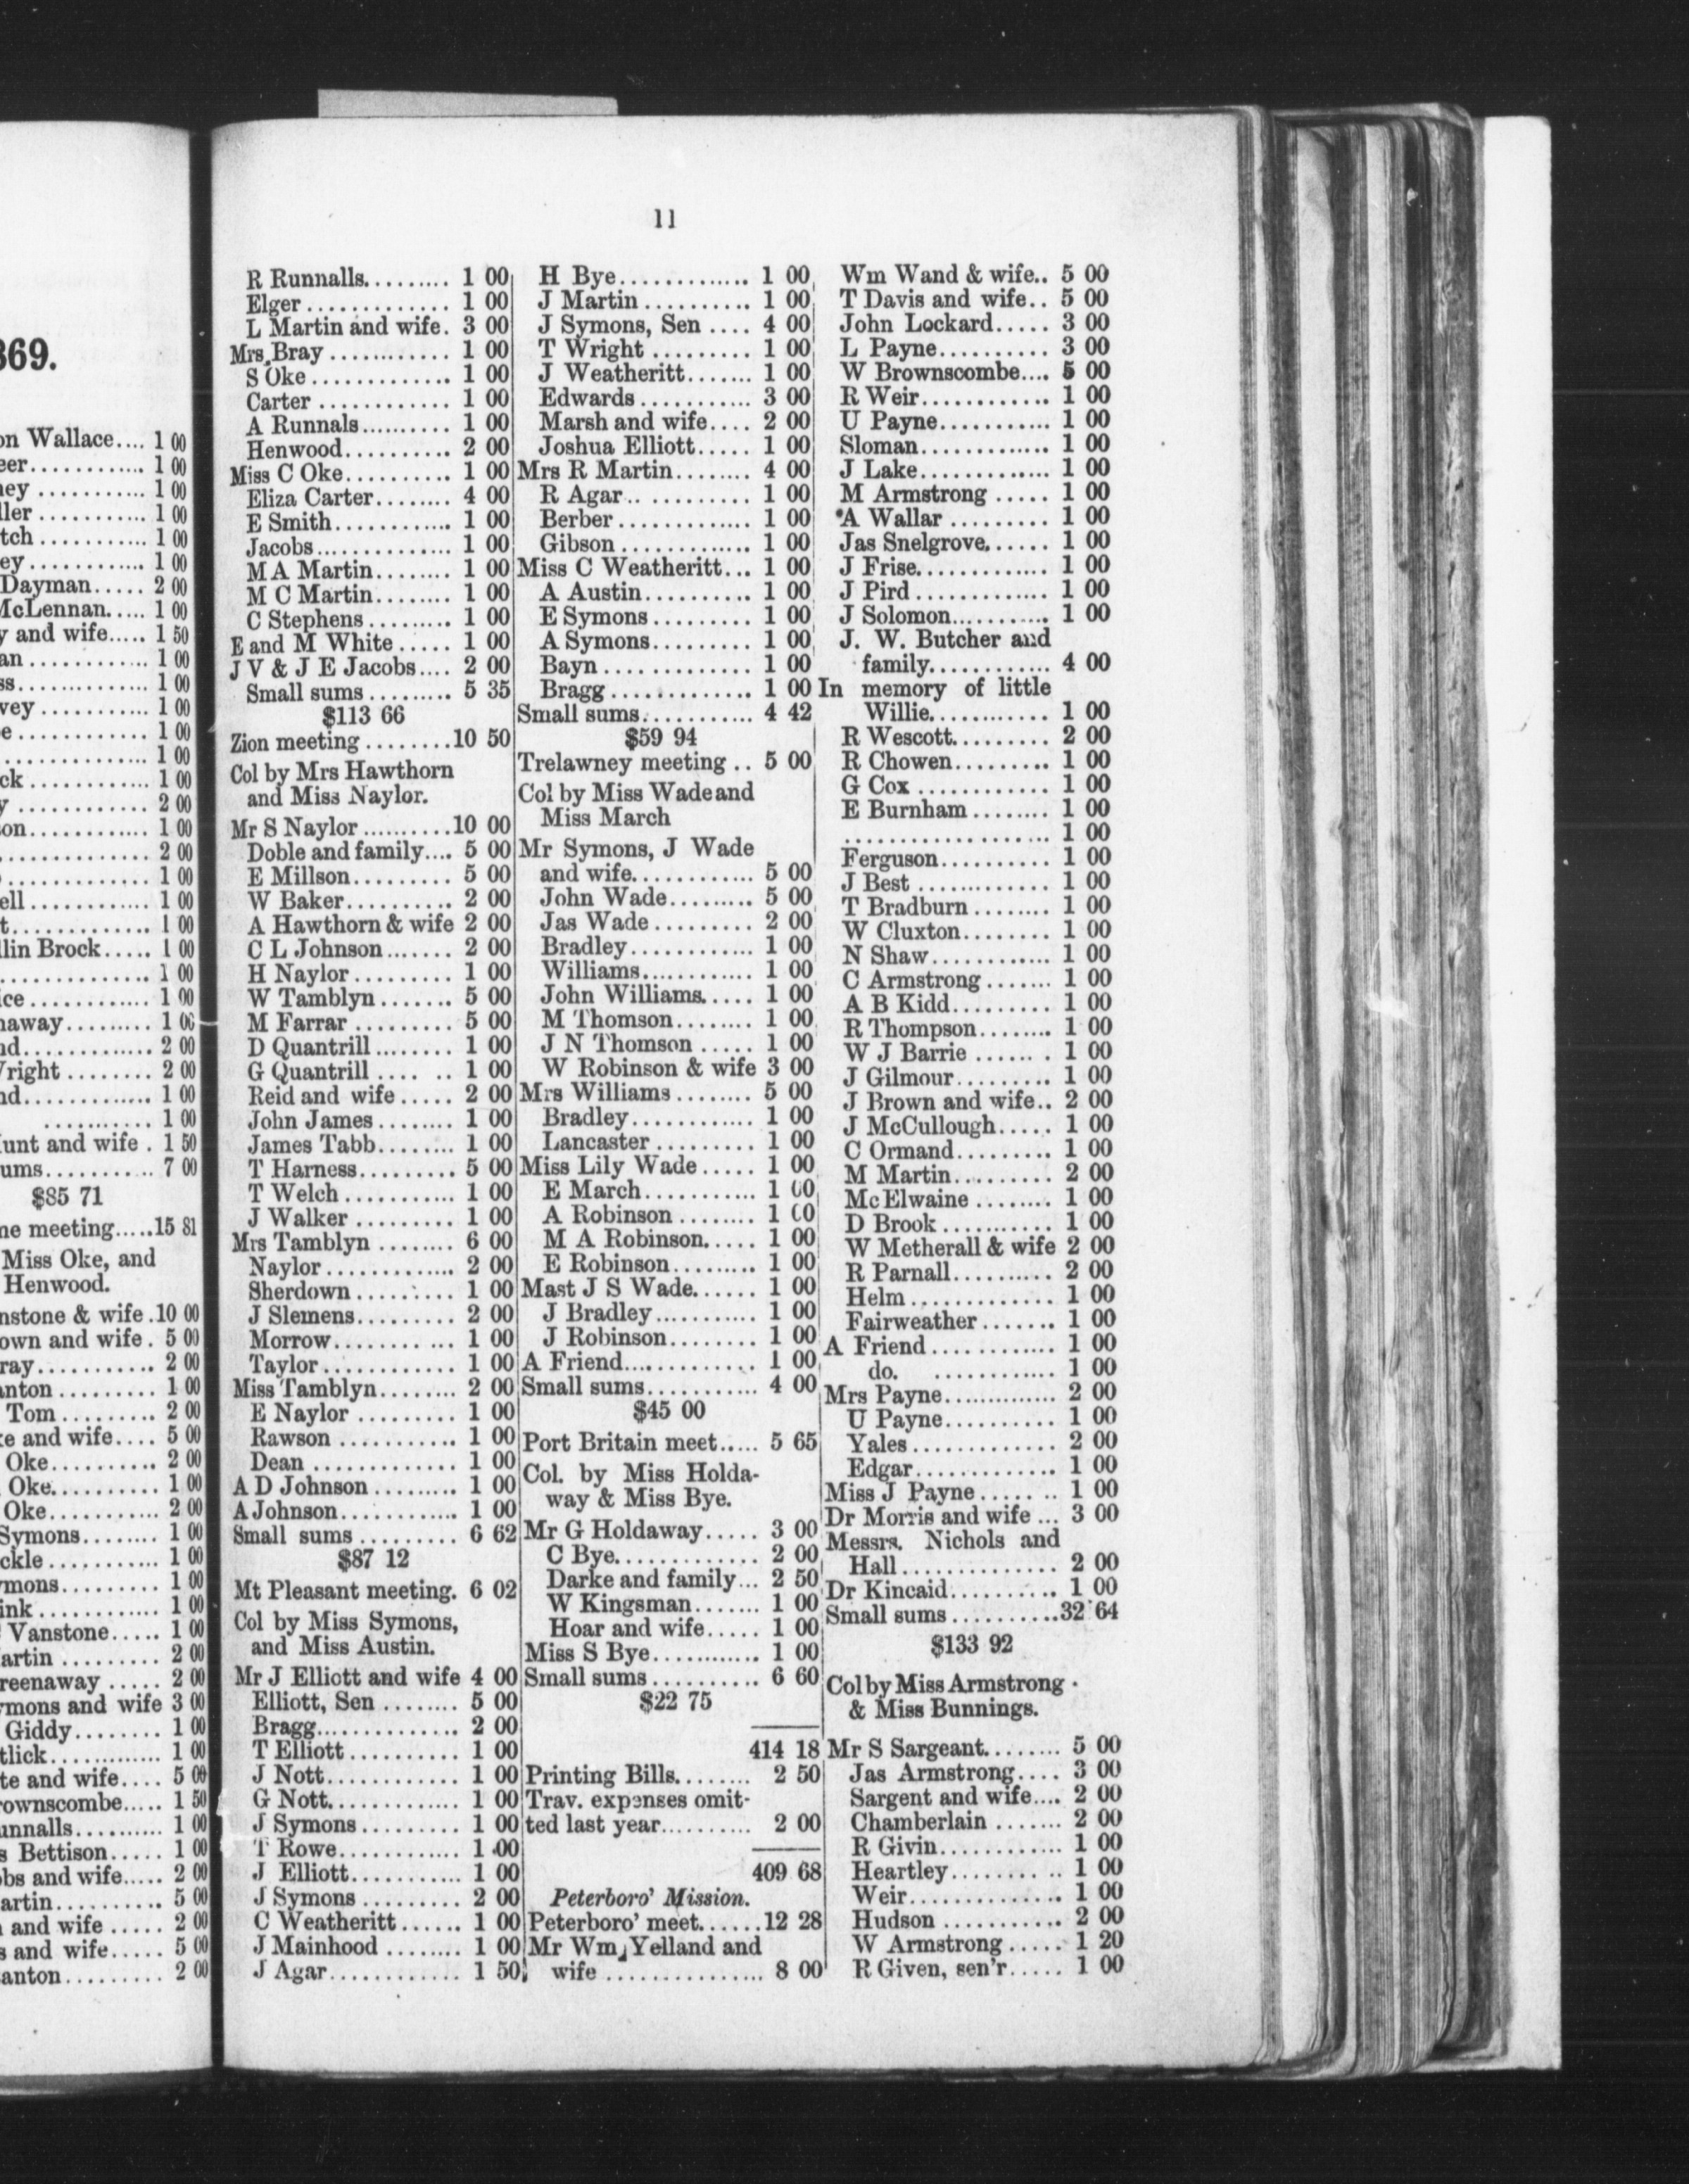 369.
on Wallace.... 1 00
eer............ 1 00
ney ........... 1 00
ller ........... 1 00
tch ........... 1 00
ey............ 1 00
Dayman..... 2 00
McLennan.... 1 00
y and wife..... 1 50
an ............ 1 00
ss.............. 1 00
vey ........... 1 00
e ............. 1 00
.............. 1 00
ck............ 1 00
y ............. 2 00
on............ 1 00
............... 2 00
.............. 1 00
ell............ 1 00
t.............. 1 00
llin Brock..... 1 00
............... 1 00
ice............ 1 00
naway......... 1 00
nd............. 2 00
right ........ 2 00
nd............. 1 00
........... 1 00
unt and wife . 1 50
ums........... 7 00
$85 71
ne meeting.....15 81
Miss Oke, and
Henwood.
nstone & wife .10 00
own and wife . 5 00
ray........... 2 00
anton ......... 1 00
Tom ......... 2 00
ke and wife.... 5 00
Oke.......... 2 00
Oke.......... 1 00
Oke........... 2 00
Symons........ 1 00
ckle ........... 1 00
ymons......... 1 00
ink ............ 1 00
Vanstone..... 1 00
artin ......... 2 00
reenaway ..... 2 00
ymons and wife 3 00
Giddy........ 1 00
tlick............ 1 00
te and wife.... 5 00
rownscombe..... 1 50
unnalls.......... 1 00
s Bettison..... 1 00
bs and wife..... 2 00
artin.......... 5 00
and wife ..... 2 00
s and wife..... 5 00
anton......... 2 00
11
R Runnalls......... 1 00
Elger ............. 1 00
L Martin and wife. 3 00
Mrs Bray ............ 1 00
S Oke............. 1 00
Carter ............ 1 00
A Runnals.......... 1 00
Henwood.......... 2 00
Miss C Oke.......... 1 00
Eliza Carter........ 4 00
E Smith........... 1 00
Jacobs.............. 1 00
M A Martin........ 1 00
M C Martin........ 1 00
C Stephens......... 1 00
E and M White ..... 1 00
J V & J E Jacobs.... 2 00
Small sums ......... 5 35
$113 66
Zion meeting ........10 50
Col by Mrs Hawthorn
and Miss Naylor.
Mr S Naylor ..........10 00
Doble and family.... 5 00
E Millson......... 5 00
W Baker.......... 2 00
A Hawthorn & wife 2 00
C L Johnson....... 2 00
H Naylor ......... 1 00
W Tamblyn ....... 5 00
M Farrar ......... 5 00
D Quantrill ........ 1 00
G Quantrill .... .. 1 00
Reid and wife ..... 2 00
John James ........ 1 00
James Tabb........ 1 00
T Harness......... 5 00
T Welch ........... 1 00
J Walker ......... 1 00
Mrs Tamblyn ........ 6 00
Naylor ............. 2 00
Sherdown ......... 1 00
J Slemens......... 2 00
Morrow........ ... 1 00
Taylor ............. 1 00
Miss Tamblyn........ 2 00
E Naylor ......... 1 00
Rawson ........... 1 00
Dean ............. 1 00
A D Johnson ......... 1 00
A Johnson............ 1 00
Small sums ......... 6 62
$87 12
Mt Pleasant meeting. 6 02
Col by Miss Symons,
and Miss Austin.
Mr J Elliott and wife 4 00
Elliott, Sen ........ 5 00
Bragg.............. 2 00
T Elliott.......... 1 00
J Nott............ 1 00
G Nott............. 1 00
J Symons ......... 1 00
T Rowe............ 1 00
J Elliott........... 1 00
J Symons ......... 2 00
C Weatheritt ...... 1 00
J Mainhood ........ 1 00
J Agar............. 1 50
H Bye............. 1 00
J Martin .......... 1 00
J Symons, Sen .... 4 00
T Wright ......... 1 00
J Weatheritt....... 1 00
Edwards ........... 3 00
Marsh and wife.... 2 00
Joshua Elliott..... 1 00
Mrs R Martin........ 4 00
R Agar............. 1 00
Berber............. 1 00
Gibson ............ 1 00
Miss C Weatheritt... 1 00
A Austin.......... 1 00
E Symons ......... 1 00
A Symons......... 1 00
Bayn .............. 1 00
Bragg ............. 1 00
Small sums........... 4 42
$59 94
Trelawney meeting .. 5 00
Col by Miss Wade and
Miss March
Mr Symons, J Wade
and wife............ 5 00
John Wade......... 5 00
Jas Wade ......... 2 00
Bradley............ 1 00
Williams........... 1 00
John Williams..... 1 00
M Thomson........ 1 00
J N Thomson ..... 1 00
W Robinson & wife 3 00
Mrs Williams ........ 5 00
Bradley............ 1 00
Lancaster ......... 1 00
Miss Lily Wade ..... 1 00
E March........... 1 00
A Robinson ........ 1 00
M A Robinson..... 1 00
E Robinson......... 1 00
Mast J S Wade...... 1 00
J Bradley.......... 1 00
J Robinson........ 1 00
A Friend............. 1 00
Small sums........... 4 00
$45 00
Port Britain meet..... 5 65
Col. by Miss Holda-
way & Miss Bye.
Mr G Holdaway..... 3 00
C Bye............. 2 00
Darke and family... 2 50
W Kingsman....... 1 00
Hoar and wife..... 1 00
Miss S Bye........... 1 00
Small sums .......... 6 60
$22 75
414 18
Printing Bills........ 2 50
Trav. expenses omit-
ted last year.......... 2 00
409 68
Peterboro' Mission.
Peterboro' meet......12 28
Mr Wm Yelland and
wife ............... 8 00
Wm Wand & wife.. 5 00
T Davis and wife.. 5 00
John Lockard..... 3 00
L Payne.......... 3 00
W Brownscombe.... 5 00
R Weir............ 1 00
U Payne........... 1 00
Sloman............. 1 00
J Lake............. 1 00
M Armstrong ..... 1 00
A Wallar ......... 1 00
Jas Snelgrove...... 1 00
J Frise............. 1 00
J Pird ............. 1 00
J Solomon........... 1 00
J. W. Butcher and
family............ 4 00
In memory of little
Willie............ 1 00
R Wescott......... 2 00
R Chowen......... 1 00
G Cox ............ 1 00
E Burnham ........ 1 00
.................... 1 00
Ferguson.......... 1 00
J Best ............. 1 00
T Bradburn ........ 1 00
W Cluxton........ 1 00
N Shaw............ 1 00
C Armstrong ....... 1 00
A B Kidd......... 1 00
R Thompson........ 1 00
W J Barrie ...... . 1 00
J Gilmour......... 1 00
J Brown and wife.. 2 00
J McCullough..... 1 00
C Ormand......... 1 00
M Martin.......... 2 00
McElwaine ........ 1 00
D Brook ........... 1 00
W Metherall & wife 2 00
R Parnall.......... 2 00
Helm .............. 1 00
Fairweather ....... 1 00
A Friend ............ 1 00
do. ............ 1 00
Mrs Payne............. 2 00
U Payne.......... 1 00
Yales ............. 2 00
Edgar.............. 1 00
Miss J Payne ..... .. 1 00
Dr Morris and wife ... 3 00
Messrs. Nichols and
Hall .............. 2 00
Dr Kincaid.......... 1 00
Small sums ..........32 64
$133 92
Col by Miss Armstrong
& Miss Bunnings.
Mr S Sargeant........ 5 00
Jas Armstrong.... 3 00
Sargent and wife.... 2 00
Chamberlain ....... 2 00
R Givin............ 1 00
Heartley.......... 1 00
Weir.............. 1 00
Hudson ........... 2 00
W Armstrong ..... 1 20
R Given, sen'r..... 1 00